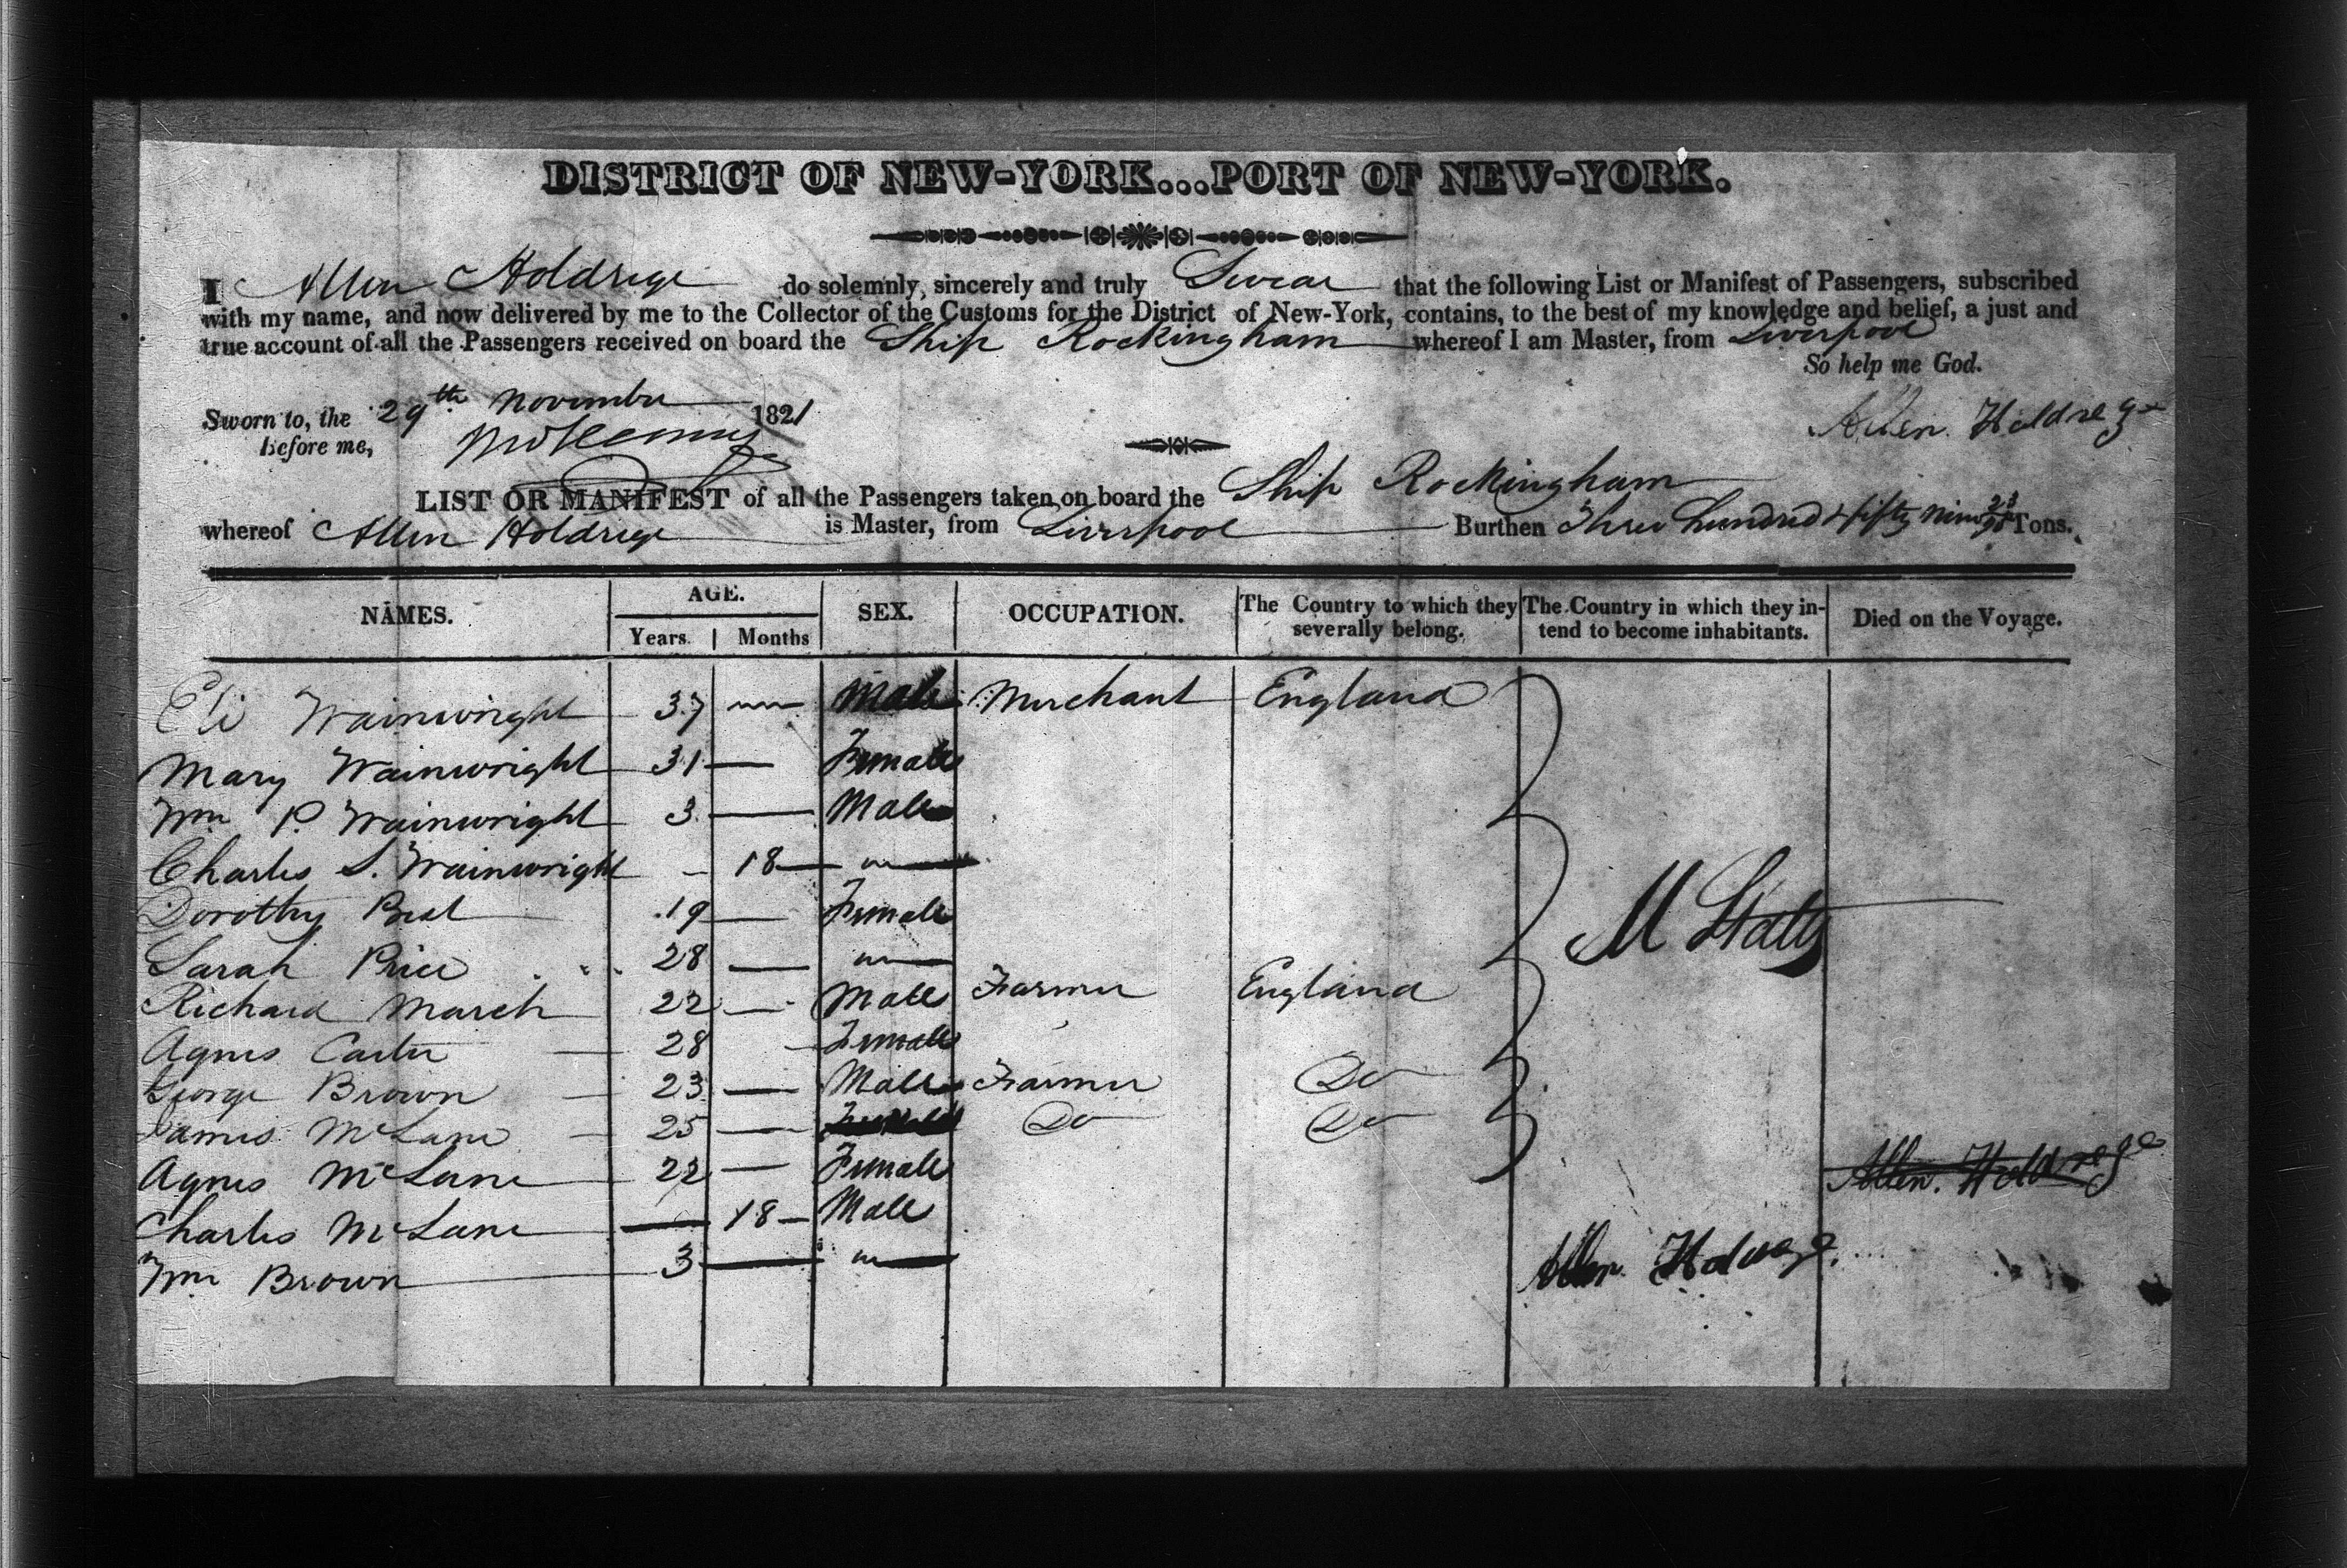 DISTRICT OF NEW-YORK...PORT OF NEW-YORK.
I Allen Holdrege do solemnly, sincerely and truly Swear that the following List or Manifest of Passengers, subscribed
with my name, and now delivered by me to the Collector of the Customs for the District of New-York, contains, to the best of my knowledge and belief, a just and
true account of all the Passengers received on board the Ship Rockingham whereof I am Master, from Liverpool
So help me God.
Sworn to, the 29th November 1821
Before me,
Allen. Holdrege
LIST OR MANIFEST of all the Passengers taken on board the Ship Rockingham
whereof Allen Holdrege is Master, from Liverpool Burthen Three hundred & fifty nine 23/95 Tons.
NAMES. AGE. Years. Months SEX. OCCUPATION. The Country to which they severally belong. The Country in which they intend to become inhabitants. Died on the Voyage.
Eli Wainwright 37 Male Merchant England
Mary Wainwright 31 — Female
Wm P. Wainwright 3 — Male
Charles S. Wainwright - 18 — " —
Dorothy Best 19 — Female
Sarah Price 28 — " —
Richard March 22 — Male Farmer England
Agnes Carter — 28 - Female
George Brown — 23 — Male Farmer Do
James McLane — 25 — Do Do
Agnes McLane 22 — Female
Charles McLane — 18 — Male
Wm Brown 3 — " —
U States
Allen. Holdrege
Allen. Holdrege.